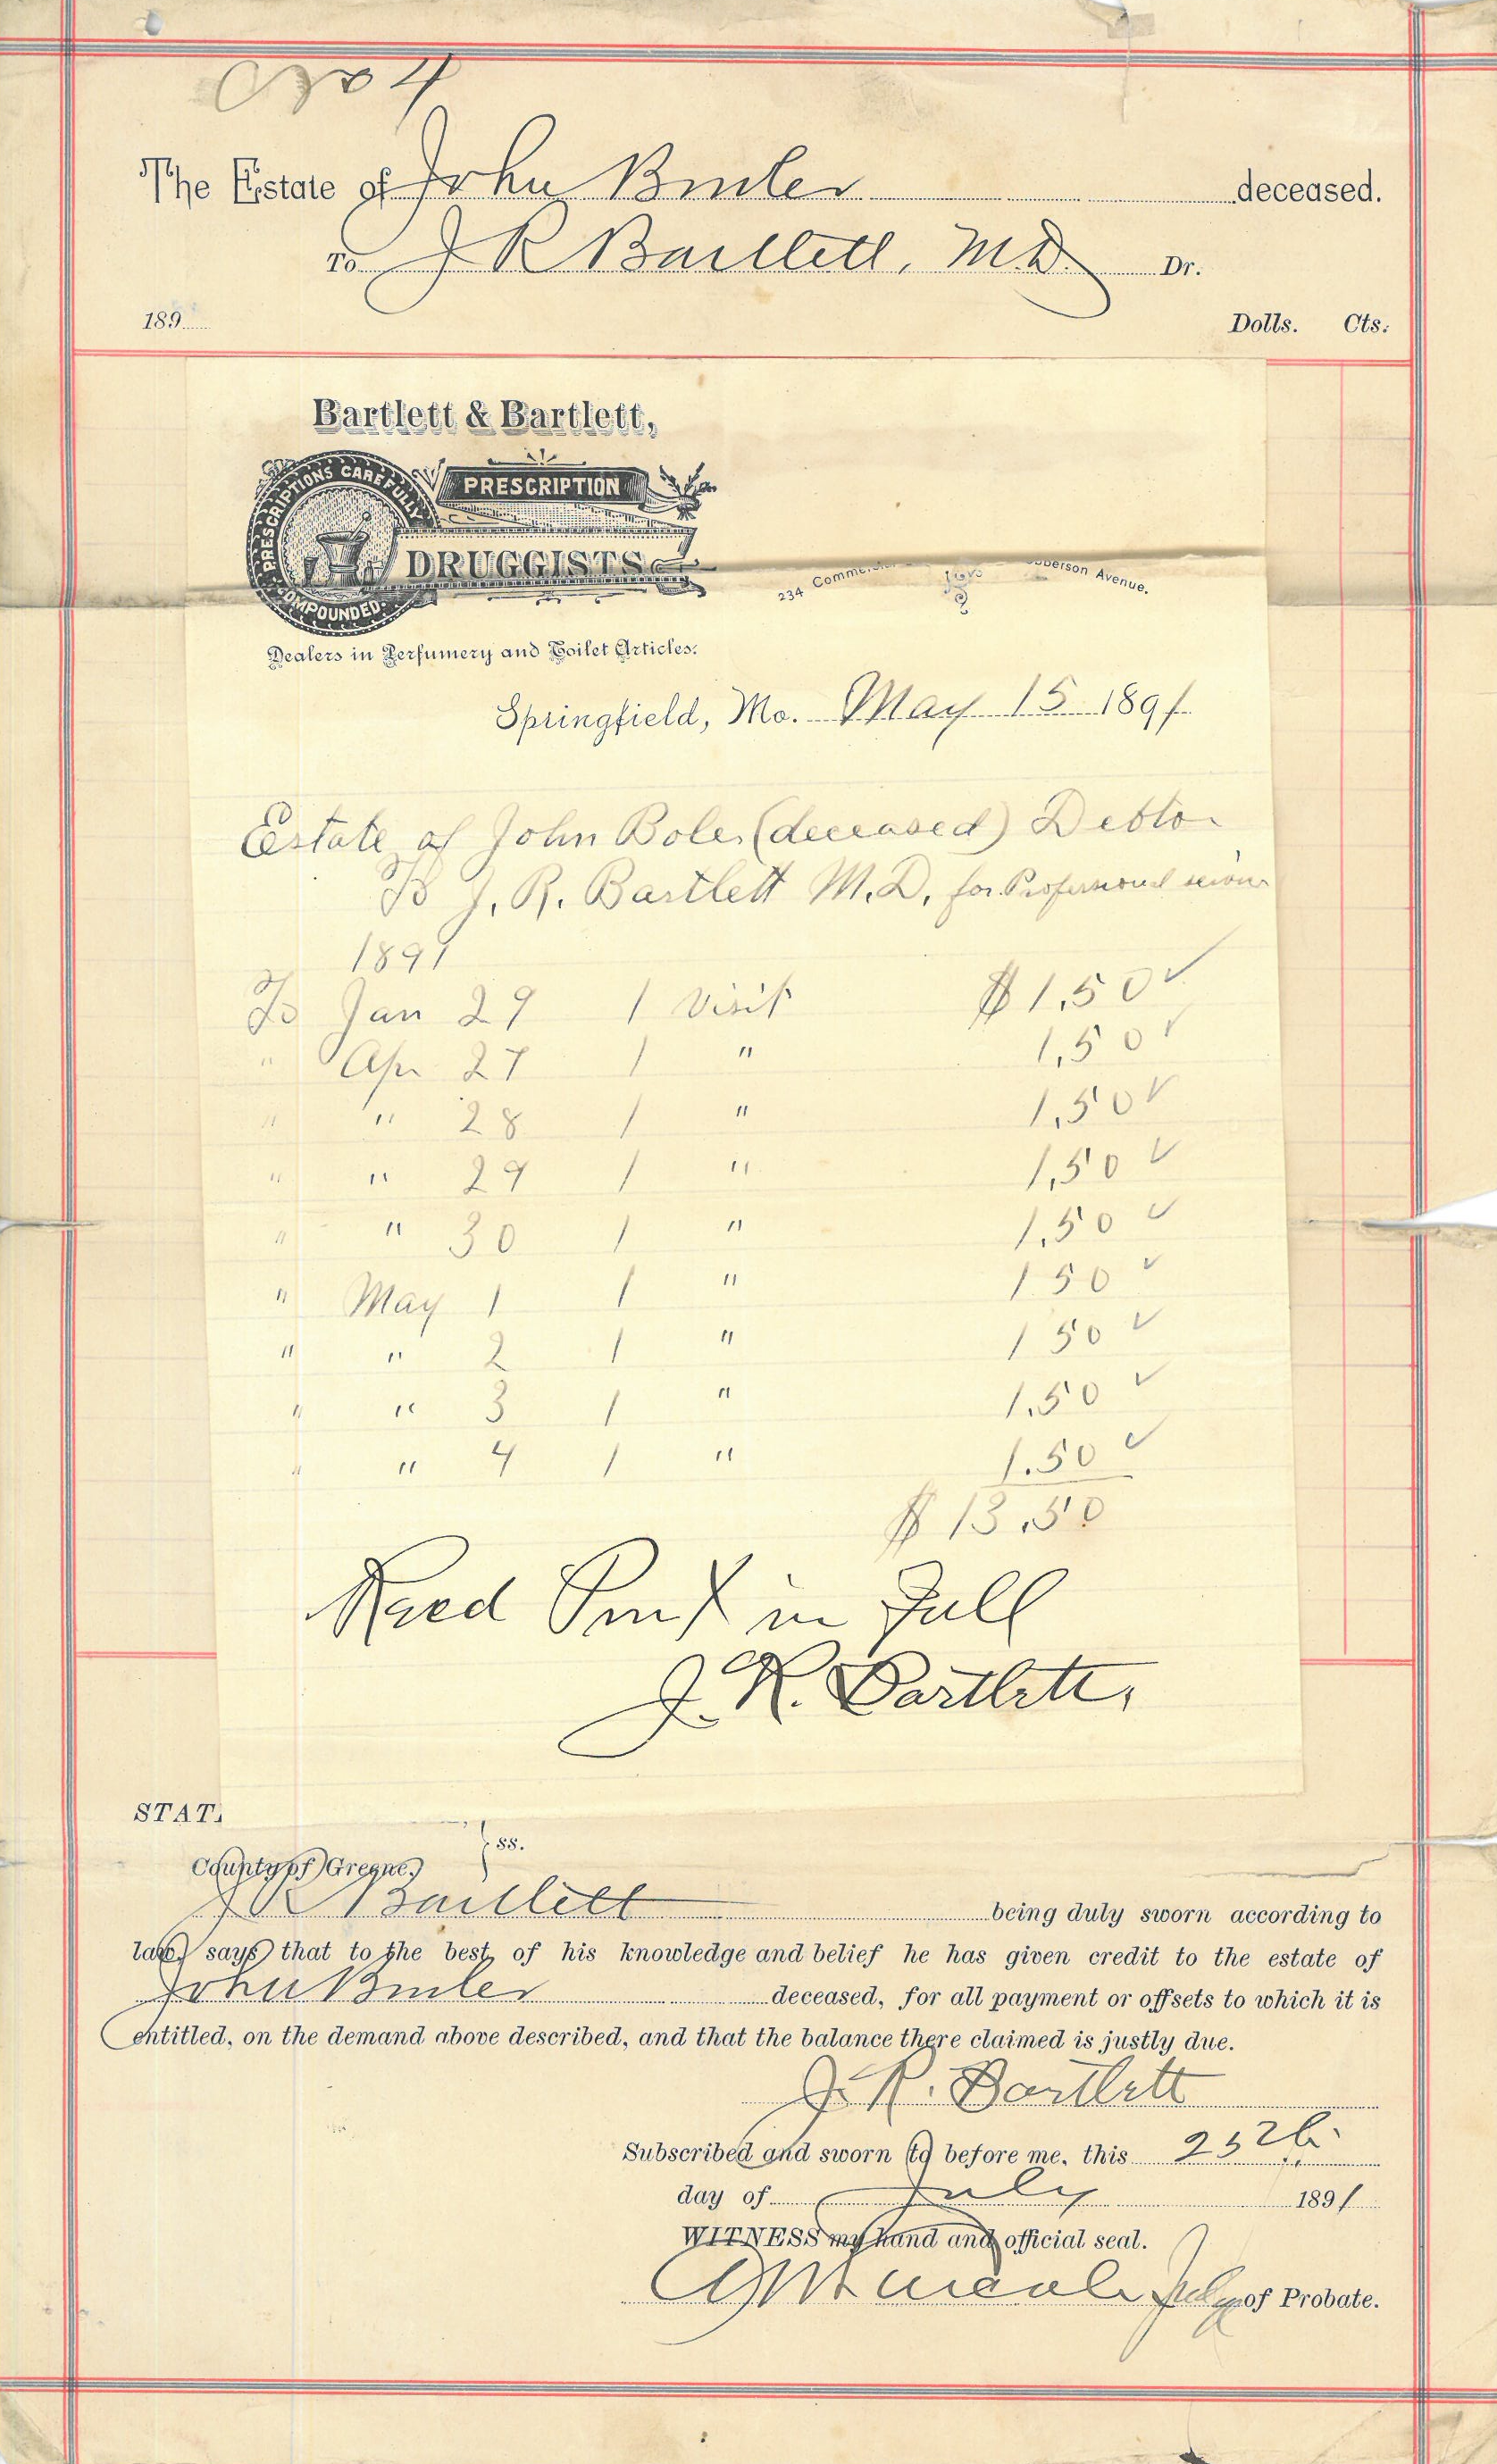 No 4
The Estate of John Builer deceased.
To J R Bartlett, M.D. Dr.
189 Dolls. Cts.
Bartlett & Bartlett,
PRESCRIPTIONS CAREFULLY COMPOUNDED.
PRESCRIPTION
DRUGGISTS
234 Avenue.
Dealers in Perfumery and Toilet Articles.
Springfield, Mo. May 15 1891
Estate of John Boler (deceased) Debtor
To J. R. Bartlett M.D. for Professional
1891
To Jan 29 1 Visit $1.50 ✓
" Apr 27 1 " 1.50 ✓
" " 28 1 " 1.50 ✓
" " 29 1 " 1.50 ✓
" " 30 1 " 1.50 ✓
" May 1 1 " 1 50 ✓
" " 2 1 " 1 50 ✓
" " 3 1 " 1.50 ✓
" " 4 1 " 1.50 ✓
$ 13.50
Recd Pmt in Full
J. R. Bartlett,
STAT
County of Greene, } ss.
J R Bartlett being duly sworn according to
law, says that to the best of his knowledge and belief he has given credit to the estate of
John Builer deceased, for all payment or offsets to which it is
entitled, on the demand above described, and that the balance there claimed is justly due.
J. R. Bartlett
Subscribed and sworn to before me, this 25th
day of July 1891
WITNESS my hand and official seal.
Judge of Probate.